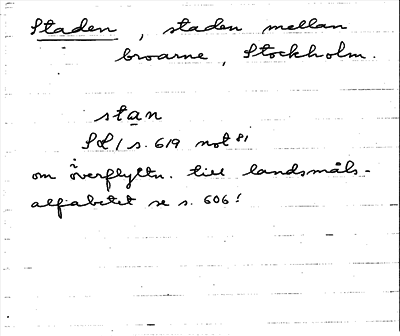 Staden, staden mellan
broarne, Stockholm.
stan
SL 1 s. 619 not 81
om överflyttn. till landsmåls-
alfabetet se s. 606!